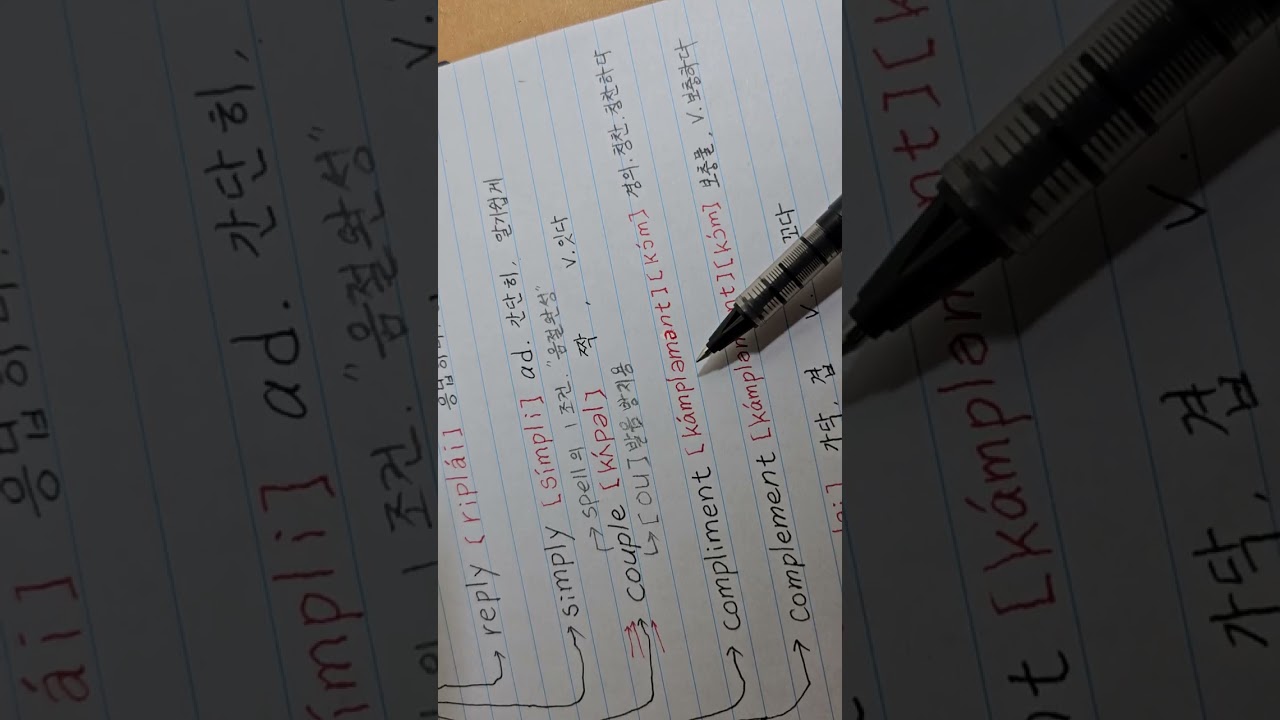 reply [riplái] 응답하다
simply [símpli] ad. 간단히, 알기쉽게
spell의 1조건. "음절완성"
couple [kʌ́pəl] 짝, V.잇다
[ou]발음방지용
compliment [kámpləmənt][kɔ́m] 경의.칭찬.칭찬하다
complement [kámpləm nt][kɔ́m] 보충물, V.보충하다
ai] 가닥, 겹 V. 꼬다